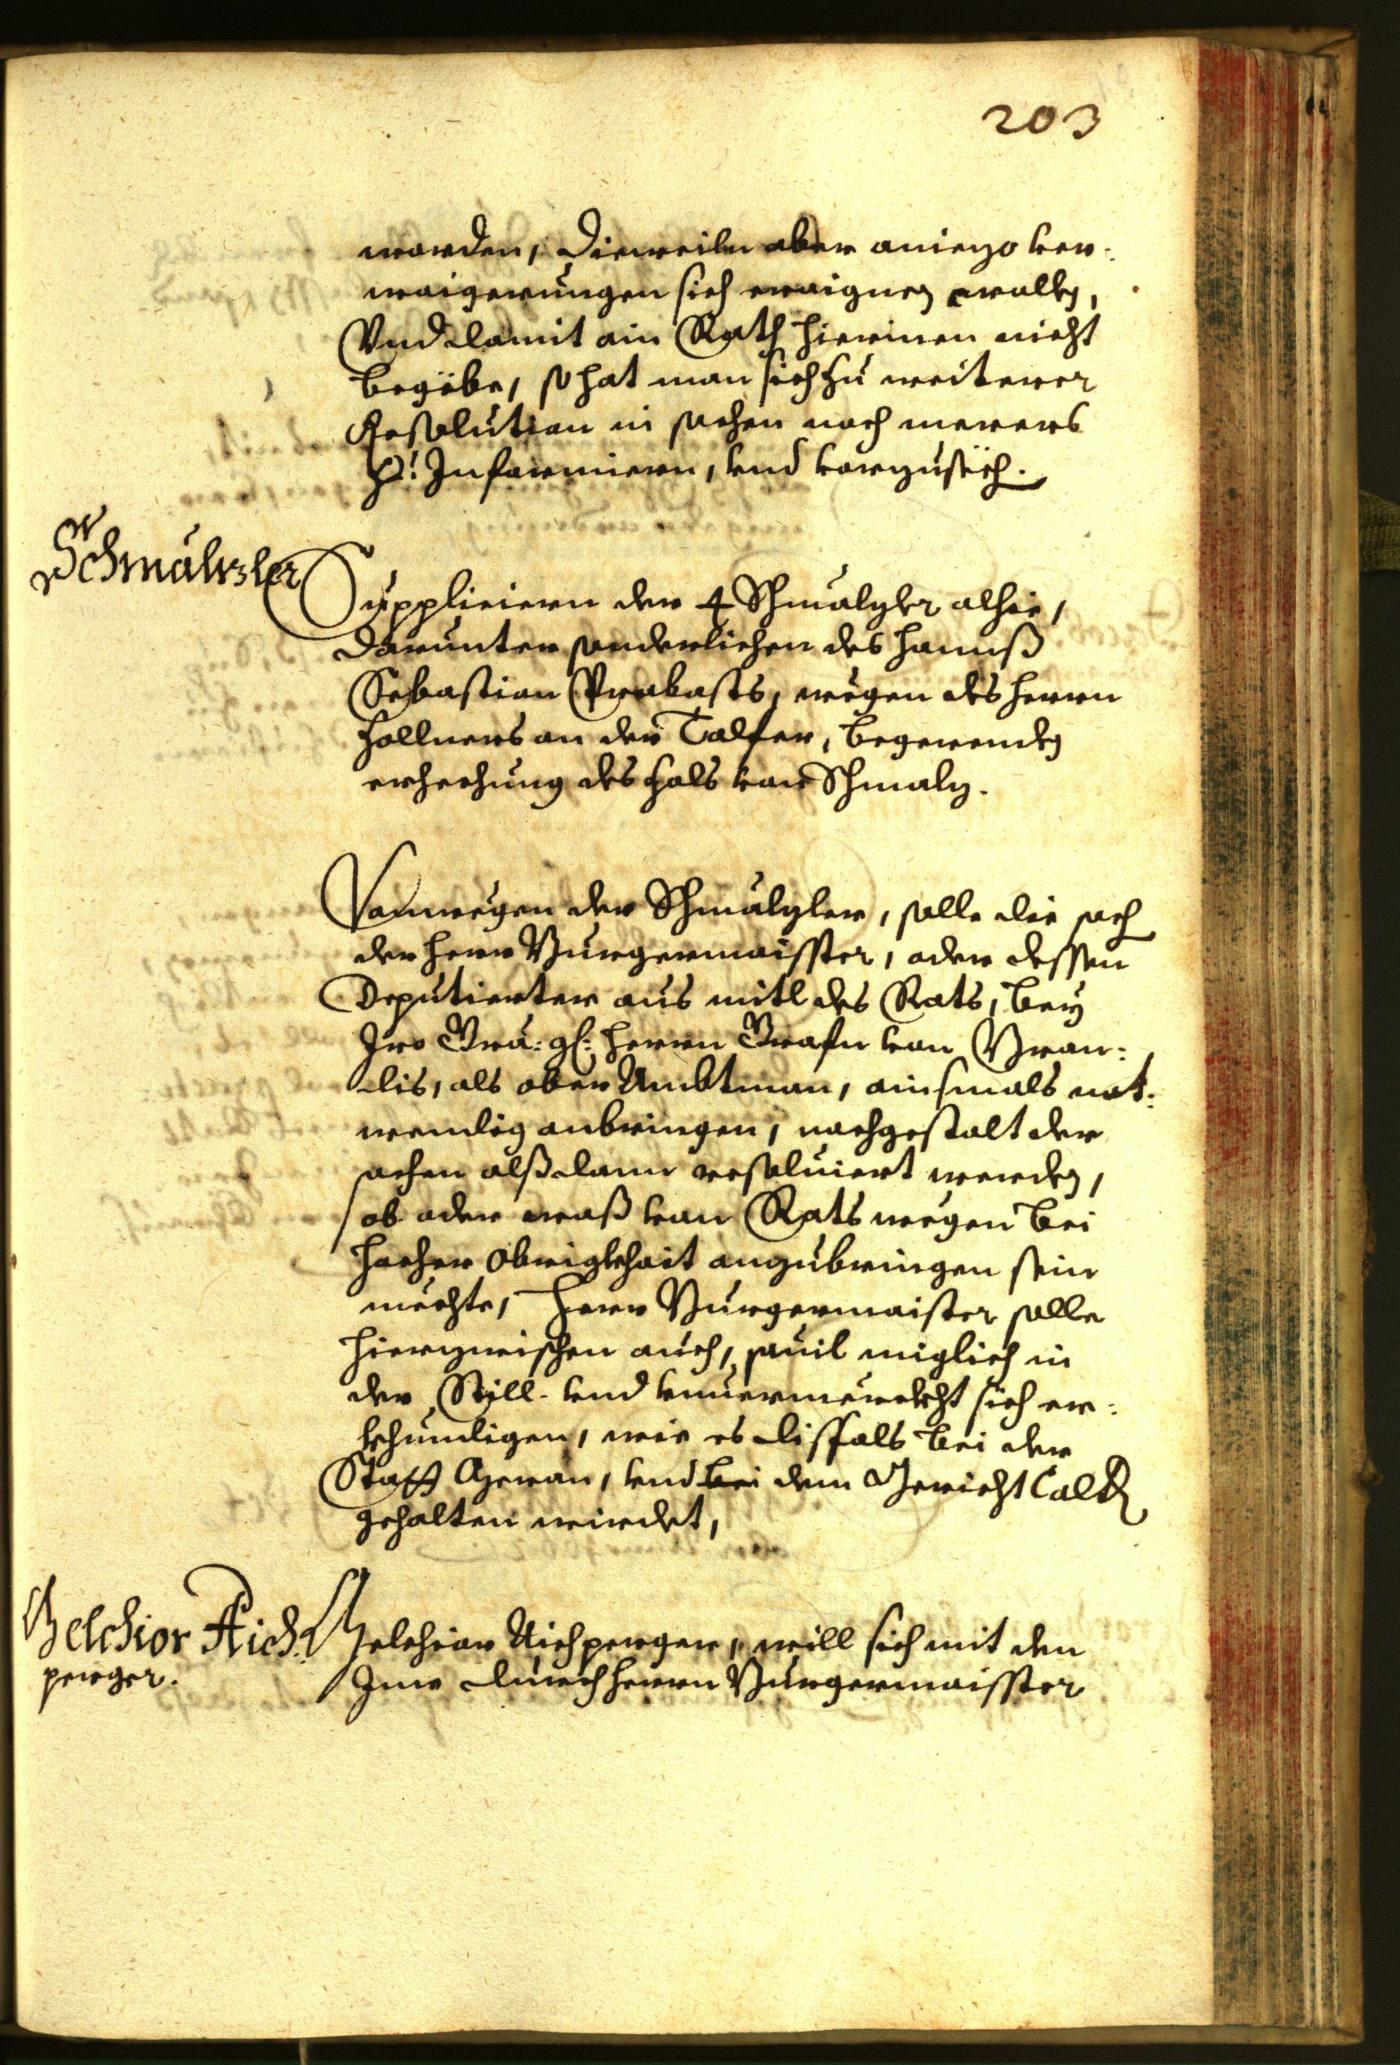 203
worden, Dieweiln aber aniezo ver¬
waigerungen sich eraignen wollen,
Vnd damit ain Rath hierinen nicht
begebe, so hat man sich zu weiterer
Resolution in sachen noch merers
zu Informiern, vnd vorzusech.
Schmalzler
Suppliciern der 4 Schmalzler alhie,
darunter sonderlichen des Hannß
Sebastian Probasts, wegen des herrn
Zollners an der Talfer, begerenden
erhechung des Zols von Schmalz.
Vonwegen der Schmalzler, solle die sach
der herr Burgermaisster, oder dessen
Deputierter aus mitl des Rats, bey
Iro Gra: gl: herrn Grafn von Bran¬
dis, als ober Ambtman, ainsmals not¬
wendig anbringen, nachgestalt der
sachen alßdann resoluiert werden,
ob oder waß von Rats wegen bei
hocher Obrigkhait anzubringen sein
mechte, herr Burgermaister solle
hierzwischen auch, souil miglich in
der Still- vnd vnuermerckht sich er¬
khundigen, wie es dissfals bei der
Statt Meran, vnd bei dem Gericht Caltern
gehalten wirdet,
Melchior Aich¬
perger.
Melchior Aichperger, will sich mit den
Ime durch herrn Burgermaisster